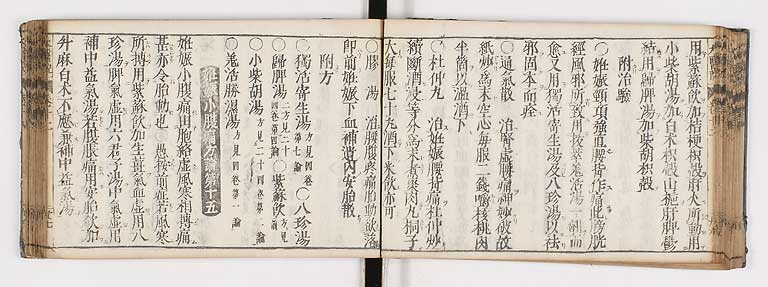 用紫蘇飲加桔梗枳殼肝火所動用
小柴胡湯加白朮枳殼山梔肝脾鬱
結用歸脾湯加柴胡枳殼
附治驗
○妊娠頸項強直腰背作痛此膀胱
經風邪所致用拔萃羌活湯一劑而
愈又用獨活寄生湯及八珍湯以祛
邪固本而痊
○通氣散 治腎虛腰痛神妙破故
紙炒為末空心每服二錢嚼核桃肉
半箇以溫酒下
○杜仲丸 治妊娠腰背痛杜仲炒
續斷酒浸等分為末煮棗肉丸桐子
大每服七十丸酒下米飲亦可
○膠 湯 治腰腹疼痛胎動欲落
即前妊娠下血補遺內安胎散
附方
○獨活寄生湯方見四卷第七論○八珍湯
○歸脾湯二方見二十四卷第四論 紫蘇飲方見
○小柴胡湯方見二十四卷第一論
○羌活勝濕湯方見四卷第一論
妊娠小腹痛方論第十五
妊娠小腹痛由胞絡虛風寒相搏痛
甚亦令胎動也 愚按前症若風寒
所搏用紫蘇飲加生薑氣血虛用八
珍湯脾氣虛用六君子湯中氣虛用
補中益氣湯若腹脹痛用安胎飲加
升麻白朮不應兼補中益氣湯